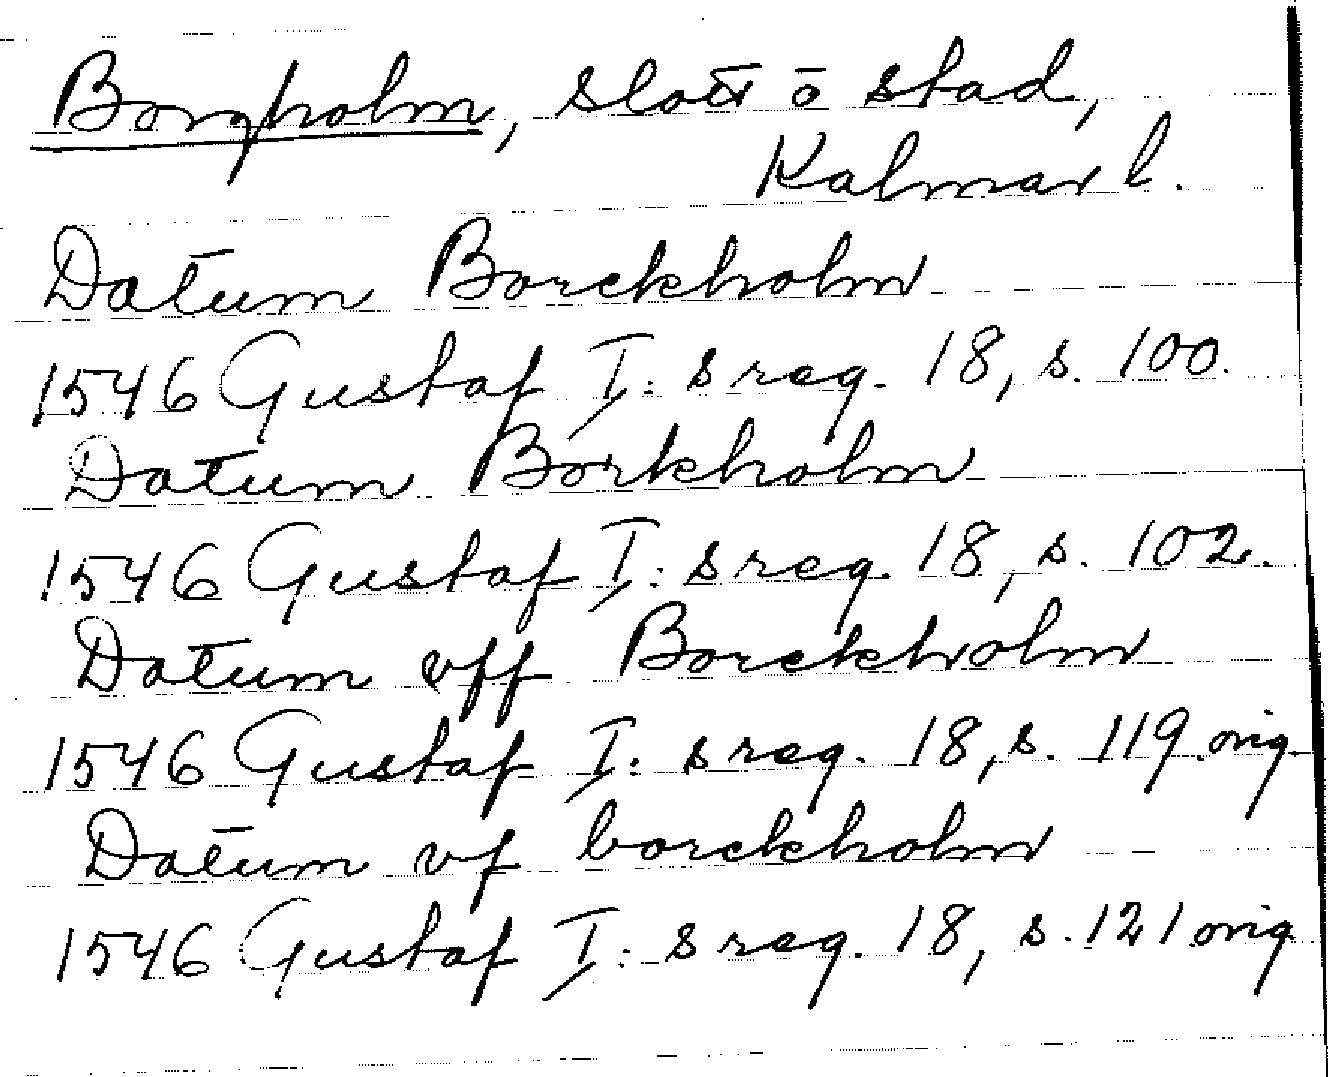 Borgholm, slott o stad,
Kalmar l.
Datum Borckholm
1546 Gustaf I:s reg. 18, s. 100.
Datum Borkholm
1546 Gustaf I:s reg. 18, s. 102.
Datum vff Borckholm
1546 Gustaf I:s reg. 18, s. 119 orig
Datum vf borckholm
1546 Gustaf I:s reg. 18, s. 121 orig